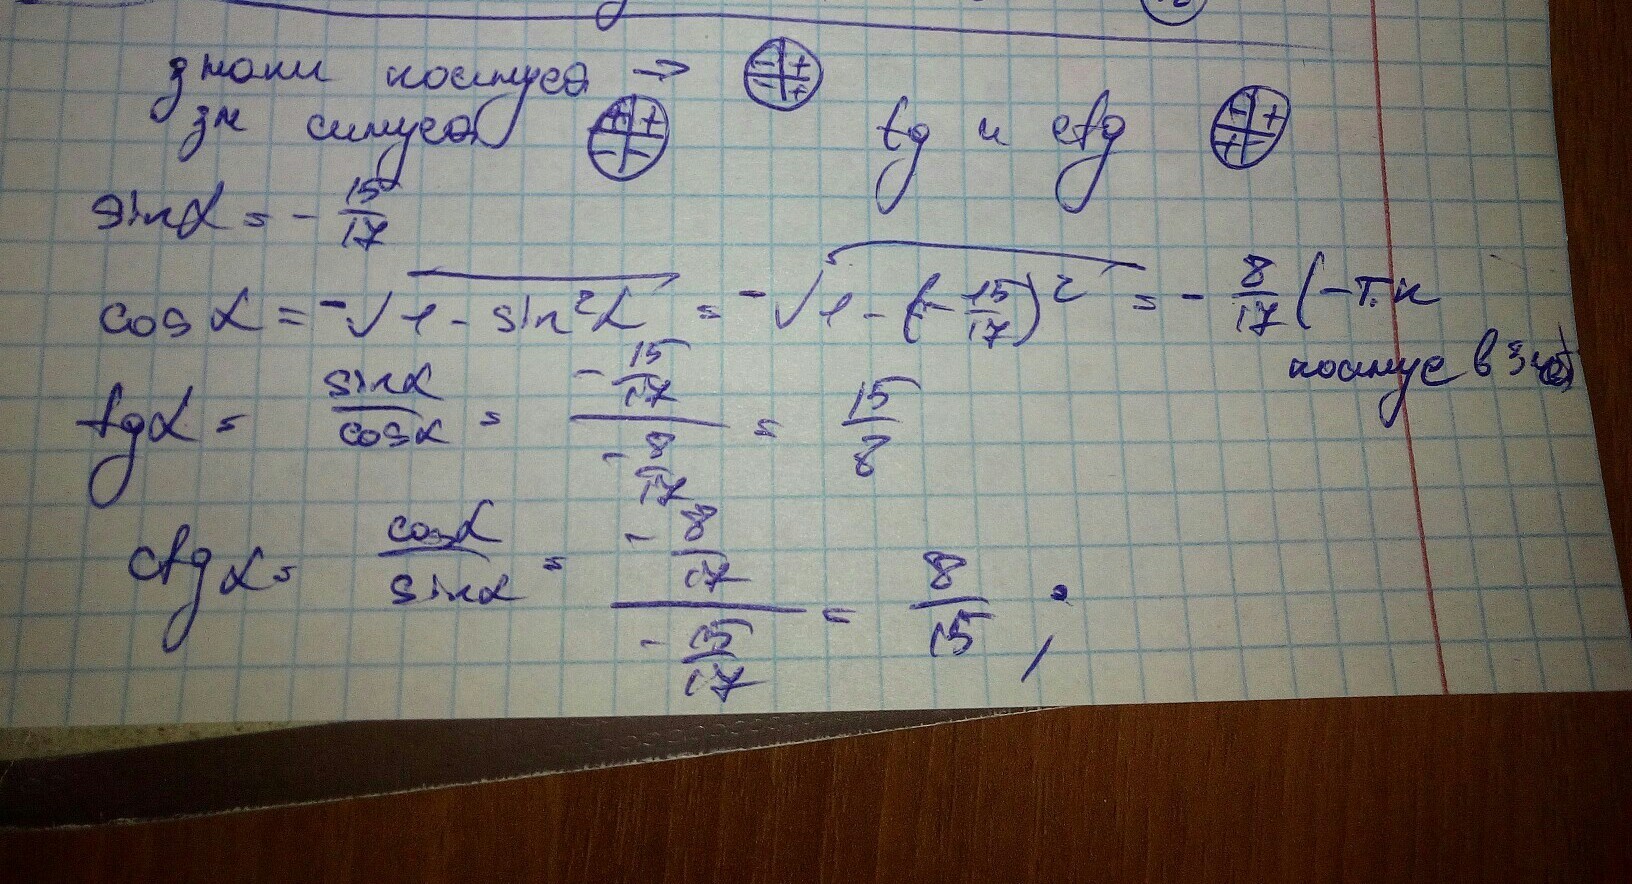 знаки косинуса →
зн синуса
tg и ctg
sinα = - 15/17
cos α = -√1 - sin²α = -√1 - (-15/17)² = - 8/17 (-т.к
косинус в 3 чет)
tgα = sinα/cosα = (-15/17)/(-8/17) = 15/8
ctg α = cosα/sinα = (-8/17)/(-15/17) = 8/15 ;